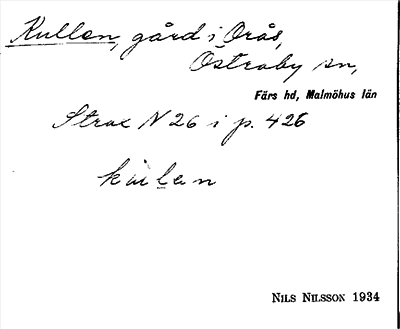 Kullen, gård i Orås,
Östraby sn,
Färs hd, Malmöhus län
Strax N 26 i p. 426
kulen
NILS NILSSON 1934